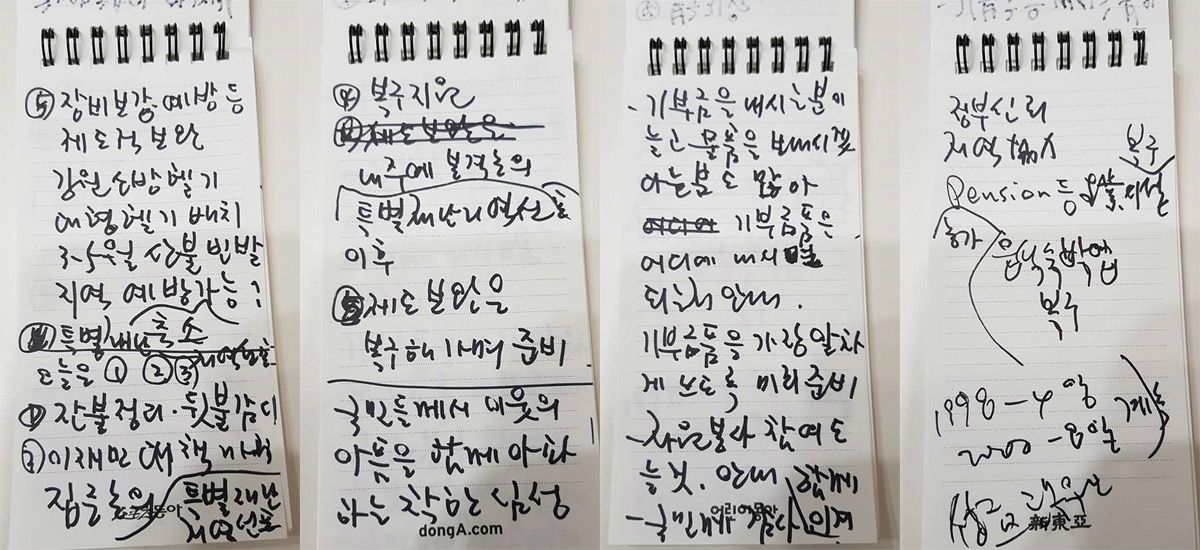 ⑤ 장비보강, 예방 등
제도적 보완
강원 소방헬기
대형헬기 배치
3-5월 산불 빈발
지역 예방가능?
특별재난 축소
지역선포
오늘은 ① ② ③
① 잔불정리. 뒷불감시
② 이재민 대책
집중논의 특별재난
지역선포
④ 복구지원
제도보완은
내주에 본격논의
특별재난지역선포
이후
⑤ 제도보완은
복구해가면서 준비
국민들께서 이웃의
아픔을 함께 아파
하는 착한 심성
dongA.com
- 기부금을 내시는분이
늘고 물품을 보내시겠
다는분도 많아
어디에 기부금품은
어디에 내시면
되는지 안내.
기부금품을 가장 알차
게 쓰도록 미리준비
- 자원봉사 참여도
늘것. 안내 함께
어린이동아
정부신뢰
지역협力
복구
Pension등 시설
허가
음식숙박업
복구
1998 - 4일
2000 - 8일
新東亞